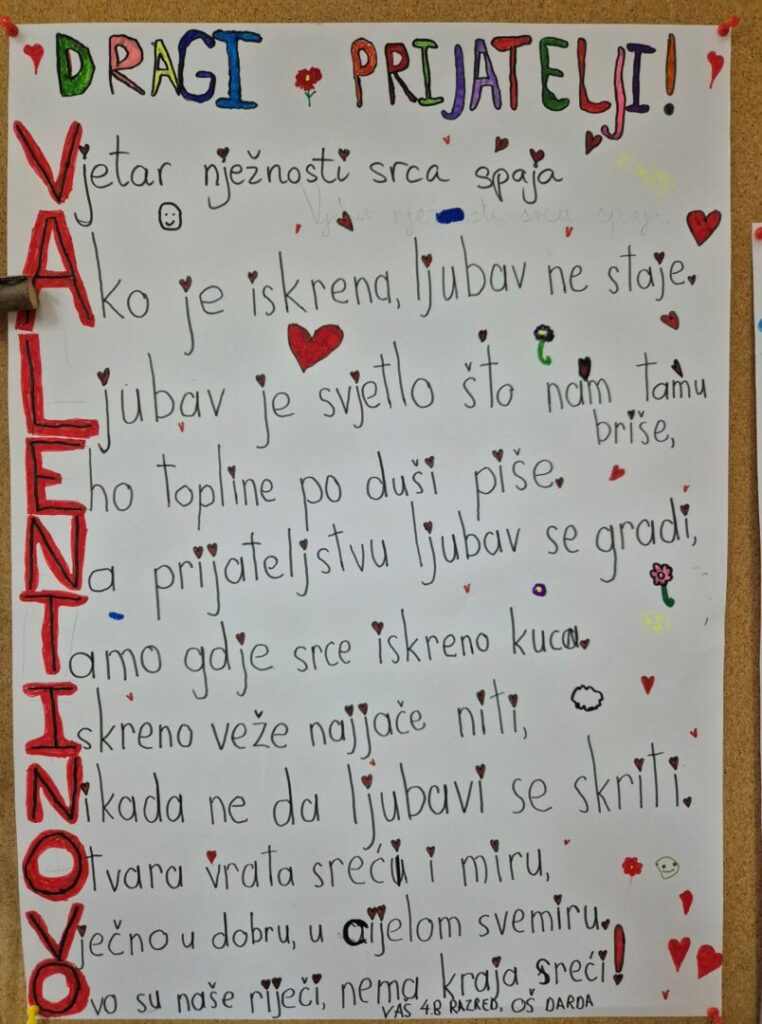 DRAGI PRIJATELJI!
Vjetar nježnosti srca spaja
Vjetar nježnosti srca spaja
Ako je iskrena, ljubav ne staje.
Ljubav je svjetlo što nam tamu
briše,
Eho topline po duši piše.
Na prijateljstvu ljubav se gradi,
Tamo gdje srce iskreno kuca.
Iskreno veže najjače niti,
Nikada ne da ljubavi se skriti.
Otvara vrata sreći i miru,
Vječno u dobru, u cijelom svemiru.
Ovo su naše riječi, nema kraja sreći!
VAŠ 4.B RAZRED, OŠ DARDA